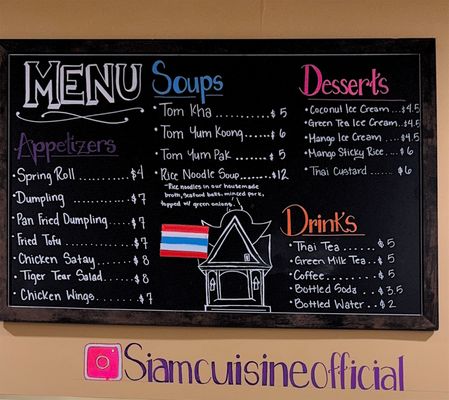 MENU
Appetizers
• Spring Roll .......... $4
• Dumpling .......... $7
• Pan Fried Dumpling ...... $7
• Fried Tofu .......... $7
• Chicken Satay ........ $8
• Tiger Tear Salad ....... $8
• Chicken Wings ........ $7
Soups
• Tom Kha .......... $5
• Tom Yum Koong ...... $6
• Tom Yum Pak ....... $5
• Rice Noodle Soup ...... $12
*Rice noodles in our housemade
broth, seafood balls, minced pork,
topped w/ green onions.
Desserts
• Coconut Ice Cream ... $4.5
• Green Tea Ice Cream ... $4.5
• Mango Ice Cream .... $4.5
• Mango Sticky Rice .. $6
• Thai Custard ....... $6
Drinks
• Thai Tea ....... $5
• Green Milk Tea .. $5
• Coffee ......... $5
• Bottled Soda .. $3.5
• Bottled Water .. $2
Siamcuisineofficial